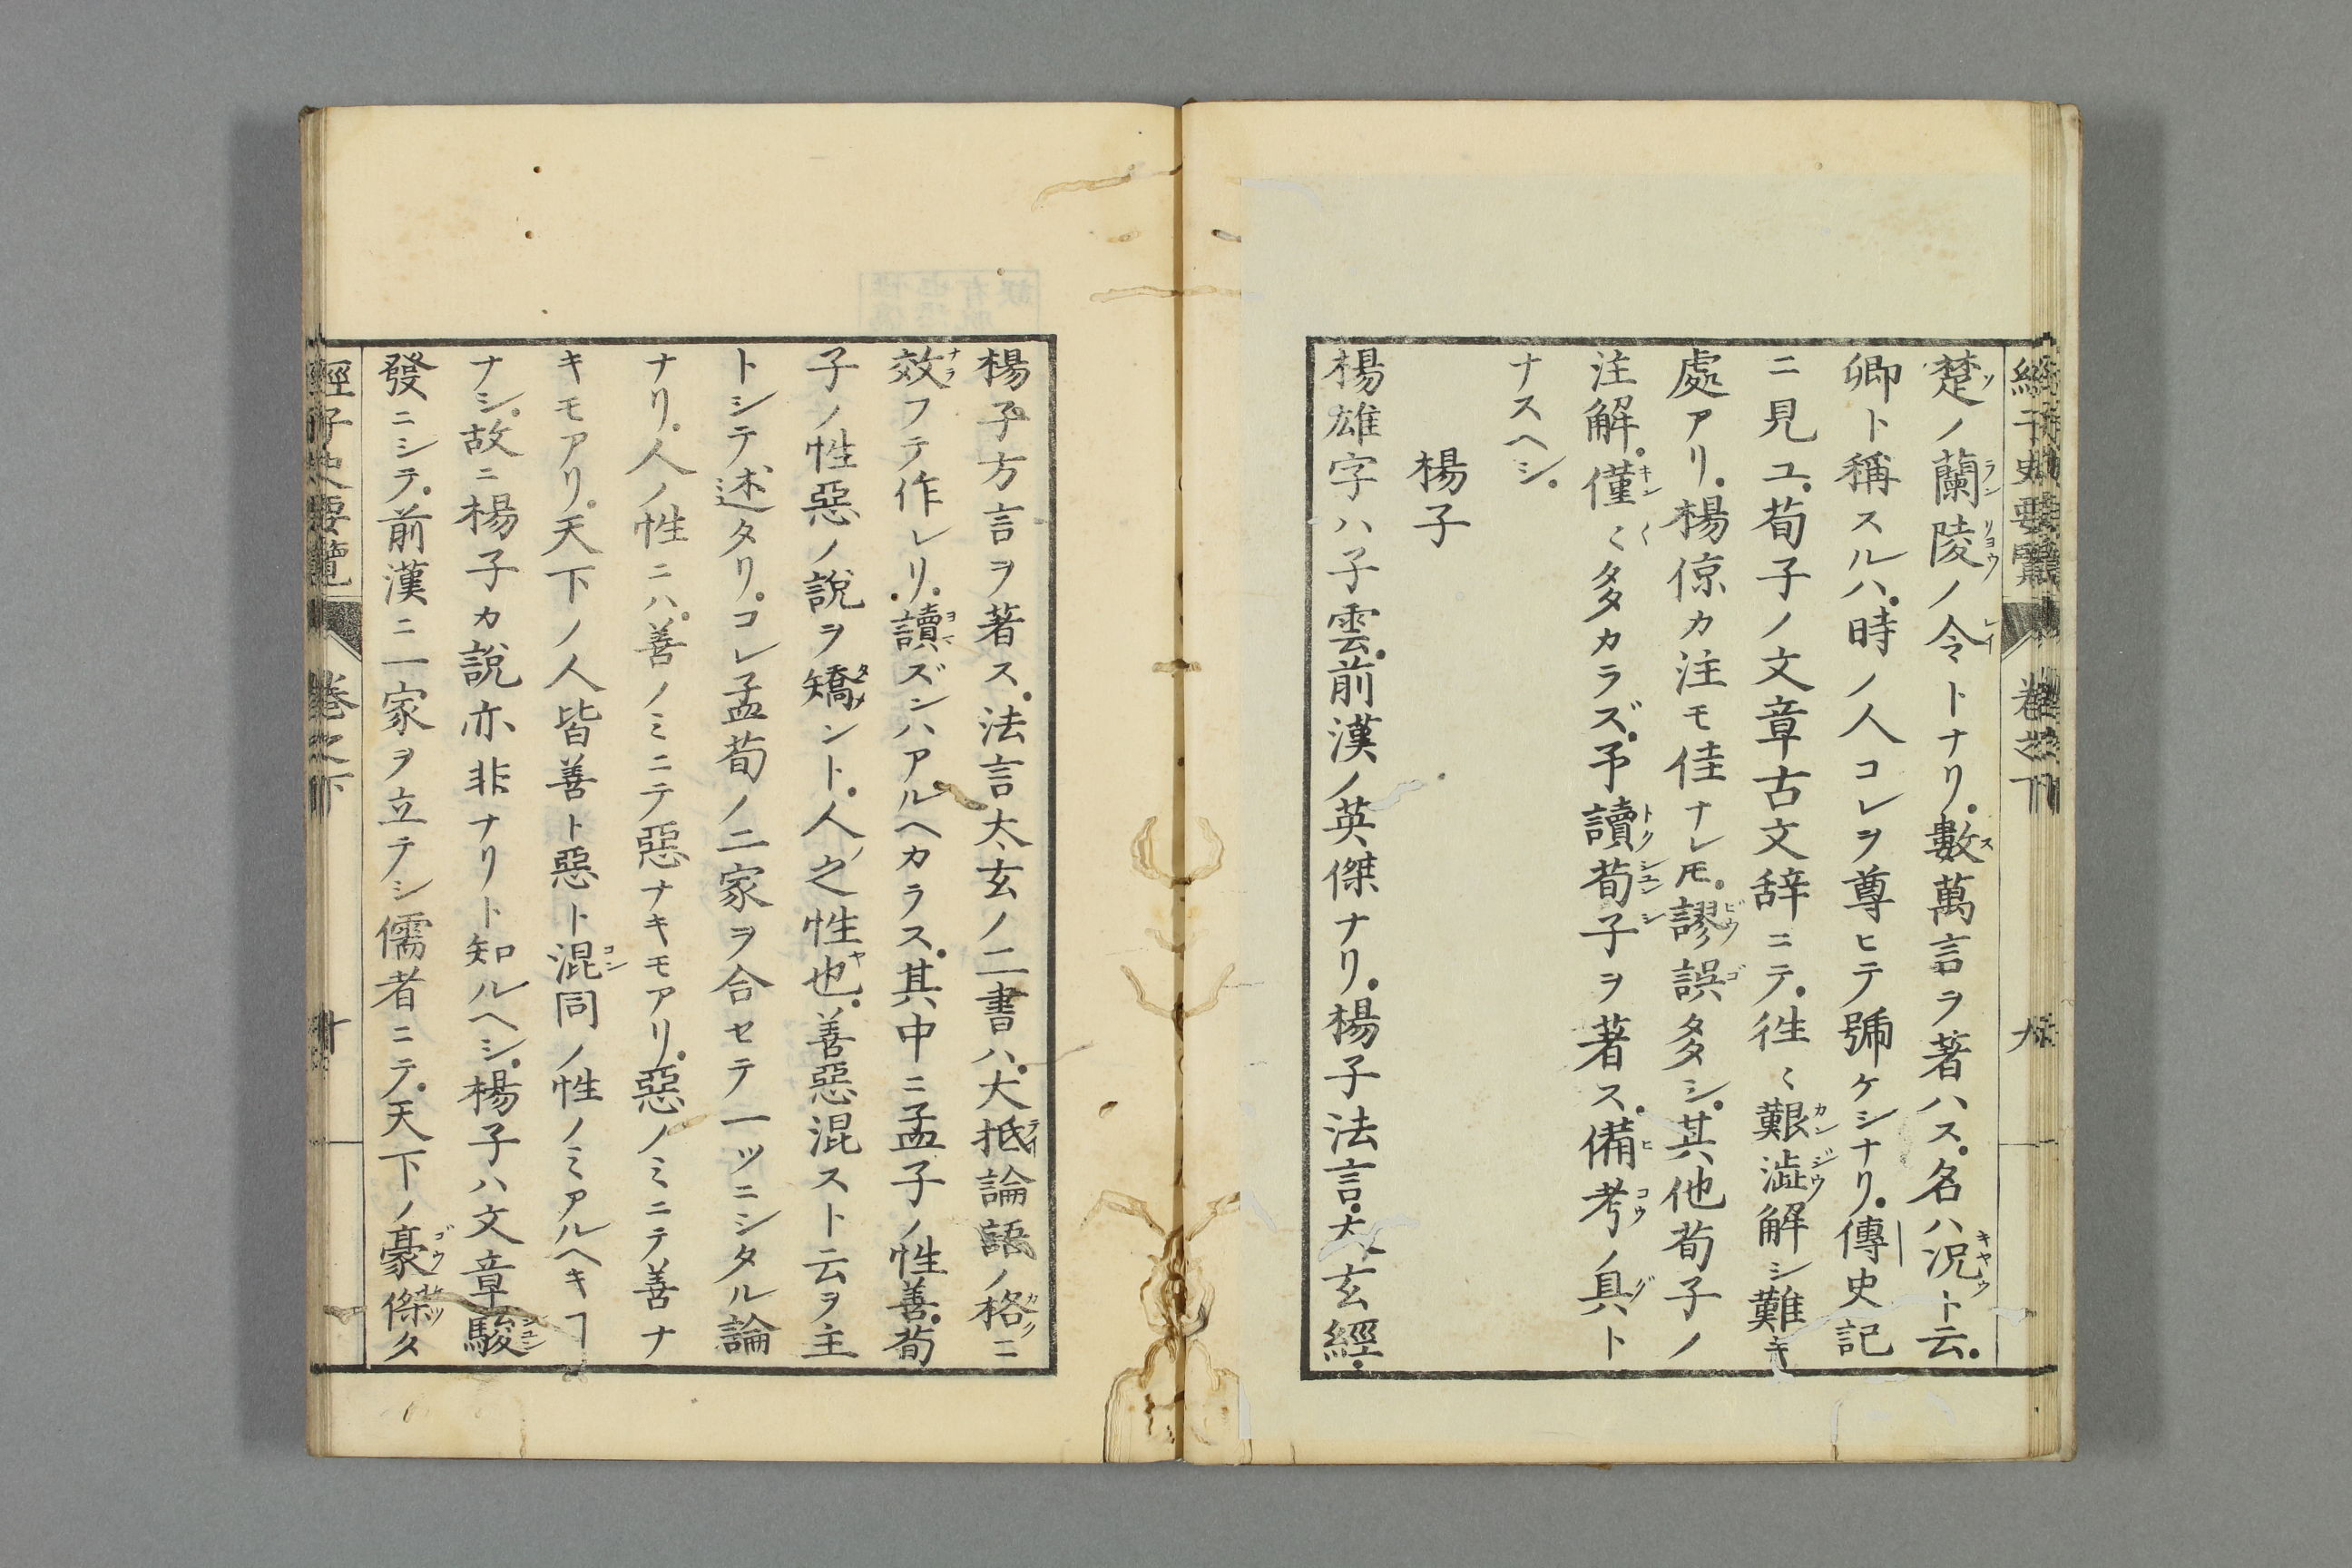 經子史要覽 卷之下 九
楚ノ蘭陵ノ令トナリ。數萬言ヲ著ハス。名ハ況ト云。
卿ト稱スルハ。時ノ人コレヲ尊ヒテ號ケシナリ。傳史記
ニ見ユ。荀子ノ文章古文辞ニテ。徃〻艱澁解シ難キ
處アリ。楊倞カ注モ佳ナレ𪜈。謬誤多シ。其他荀子ノ
注解。僅〻多カラズ。予讀荀子ヲ著ス。備考ノ具ト
ナスヘシ。
楊子
楊雄字ハ子雲。前漢ノ英傑ナリ。楊子法言。太玄經。
楊子方言ヲ著ス。法言太玄ノ二書ハ。大抵論語ノ格ニ
效フテ作レリ。讀ズンハアルヘカラス。其中ニ孟子ノ性善。荀
子ノ性惡ノ說ヲ矯ント。人之性也。善惡混スト云ヲ主
トシテ述タリ。コレ孟荀ノ二家ヲ合セテ一ツニシタル論
ナリ。人ノ性ニハ。善ノミニテ惡ナキモアリ。惡ノミニテ善ナ
キモアリ。天下ノ人皆善ト惡ト混同ノ性ノミアルヘキヿ
ナシ。故ニ楊子カ說亦非ナリト知ルヘシ。楊子ハ文章駿
發ニシテ。前漢ニ一家ヲ立テシ儒者ニテ。天下ノ豪傑タ
經子史要覽 卷之下 十